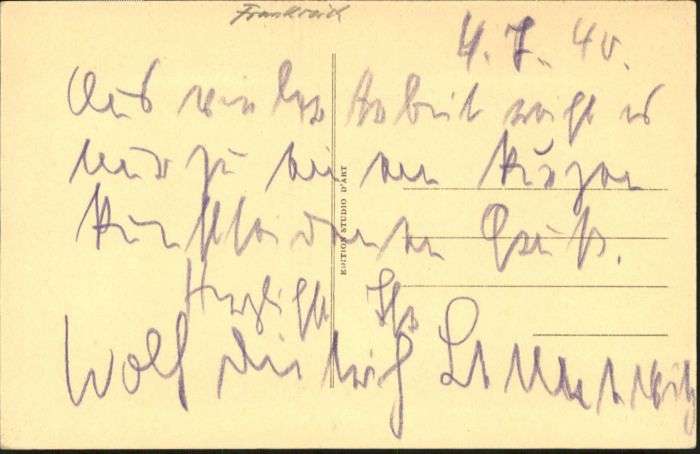 Frankreich
4. 7. 40.
Aus vieler Arbeit reicht es
nur zu einem kurzen
Gruß.
Herzlichst Ihr
Wolf Dietrich
EDITION STUDIO D'ART